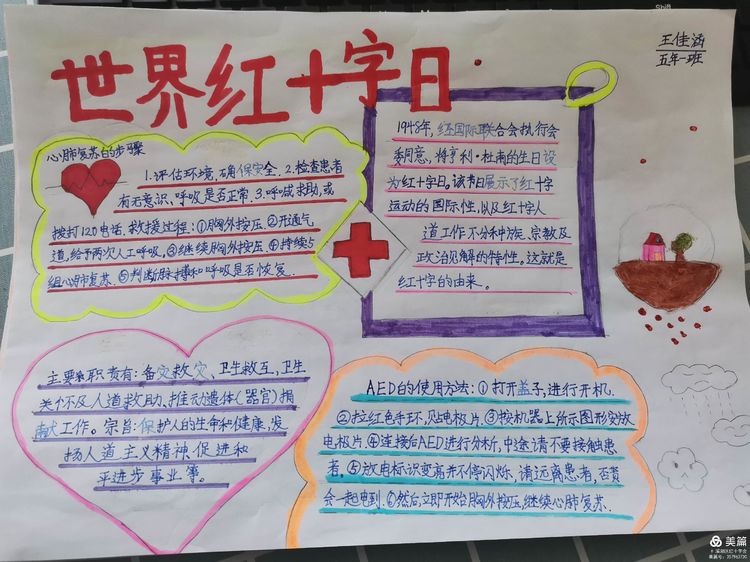 世界红十字日
王佳涵
五年一班
心肺复苏的步骤
1.评估环境,确保安全.2.检查患者
有无意识、呼吸是否正常.3.呼喊求助,或
拨打120电话.救援过程:①胸外按压.②开通气
道,给予两次人工呼吸.③继续胸外按压④持续5
组心肺复苏.⑤判断脉搏和呼吸是否恢复.
1948年,经国际联合会执行会
委同意,将亨利·杜南的生日设
为红十字日。该节日展示了红十字
运动的国际性,以及红十字人
道工作不分种族、宗教及
政治见解的特性。这就是
红十字的由来。
主要职责有:备灾救灾、卫生救互,卫生
关怀及人道救助、推动遗体(器官)捐
献工作。宗旨:保护人的生命和健康,发
扬人道主义精神,促进和
平进步事业等。
AED的使用方法:①打开盖子,进行开机.
②拉红色手环,见电极片.③按机器上所示图形安放
电极片④连接后AED进行分析,中途请不要接触患
者.⑤放电标识变亮并不停闪烁,请远离患者,否责
会一起电到.⑥然后,立即开始胸外按压,继续心肺复苏.
Shift
美篇
美篇号:357963730